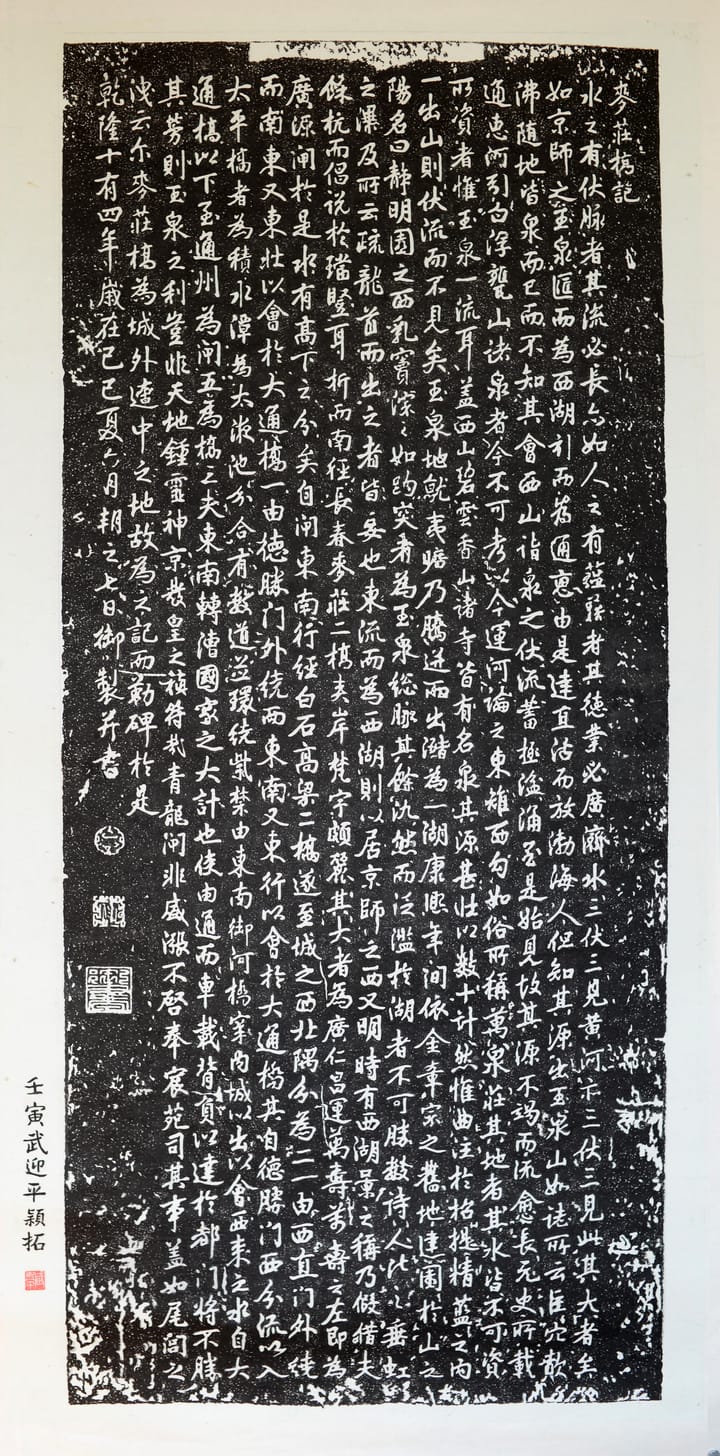 麥莊橋記
水之有伏脉者其流必長亦如人之有蘊藉者其德業必廣濟水三伏三見黄河亦三伏三見此其大者矣
如京師之玉泉匯而為西湖引而為通惠由是達直沽而放渤海人但知其源出玉泉山如誌所云巨穴歕
沸隨地皆泉而已而不知其會西山诸泉之伏流蓄極湓涌至是始見故其源不竭而流愈長元史所載
通惠河引白浮甕山诸泉者今不可考以今運河論之東雉西勾如俗所稱萬泉莊其地者其水皆不可資
所資者惟玉泉一流耳盖西山碧雲香山诸寺皆有名泉其源甚壮以數十計然惟曲注於招提精藍之内
一出山則伏流而不見矣玉泉地就夷曠乃騰迸而出瀦為一湖康熙年间依金章宗之舊地建園於山之
陽名曰靜明園之西乳竇淙〻如趵突者為玉泉総脉其餘氿然而泛濫於湖者不可勝數诗人比之垂虹
之瀑及所云疏龍首而出之者皆妄也東流而為西湖則以居京師之西又明時有西湖景之稱乃假借夫
餘杭而倡说於璫豎耳折而南經長春麥莊二橋夹岸梵宇頗麗其大者為廣仁昌運萬壽萬壽之左即為
廣源闸於是水有高下之分矣自闸東南行經白石高梁二橋遂至城之西北隅分為二一由西直门外绕
而南東又東壮以會於大通橋一由德勝門外绕而東南又東行以會於大通橋其自德勝門西分流以入
太平橋者為積水潭為太液池分合有數道並環统紫禁由東南御河橋穿内城以出以會西来之水自大
通橋以下至通州為闸五為橋三夫東南轉漕國家之大計也使由通而車載背負以達於都门將不勝
其劳則玉泉之利豈非天地鍾靈神京發皇之禎符哉青龍闸非盛漲不啓奉宸苑司其事盖如尾閭之
洩云尔麥莊橋為城外適中之地故為之記而勒碑於是
乾隆十有四年歲在己巳夏六月朔之七日御製并書
壬寅武迎平穎拓